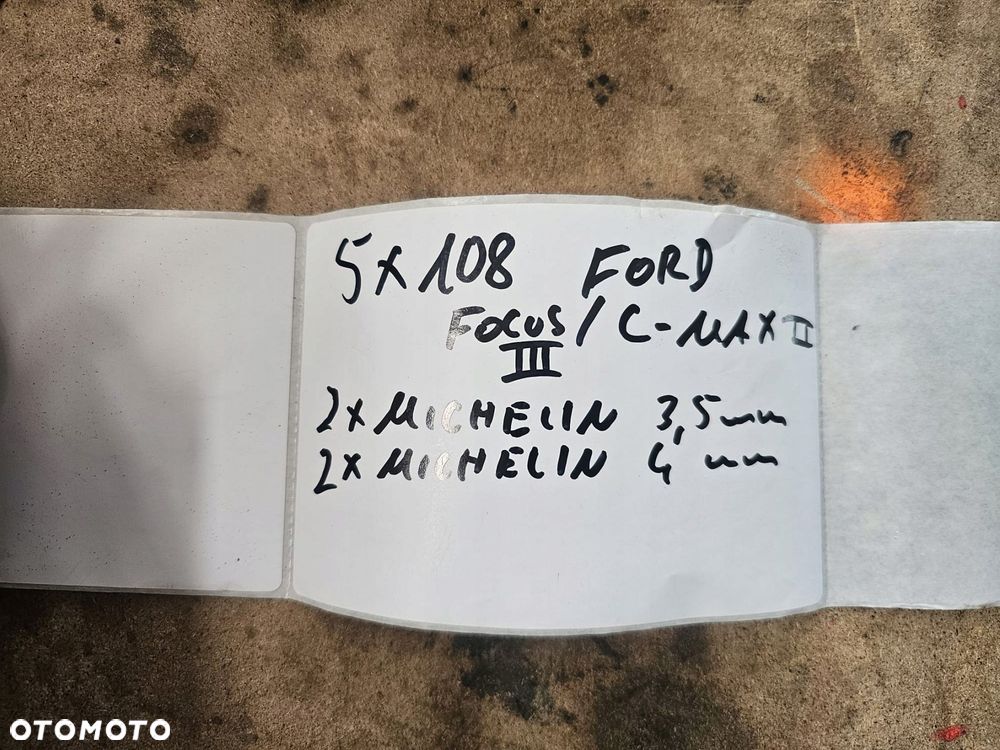 5X108 FORD
FOCUS / C-MAX II
III
2X MICHELIN 3,5mm
2X MICHELIN 4 mm
OTOMOTO